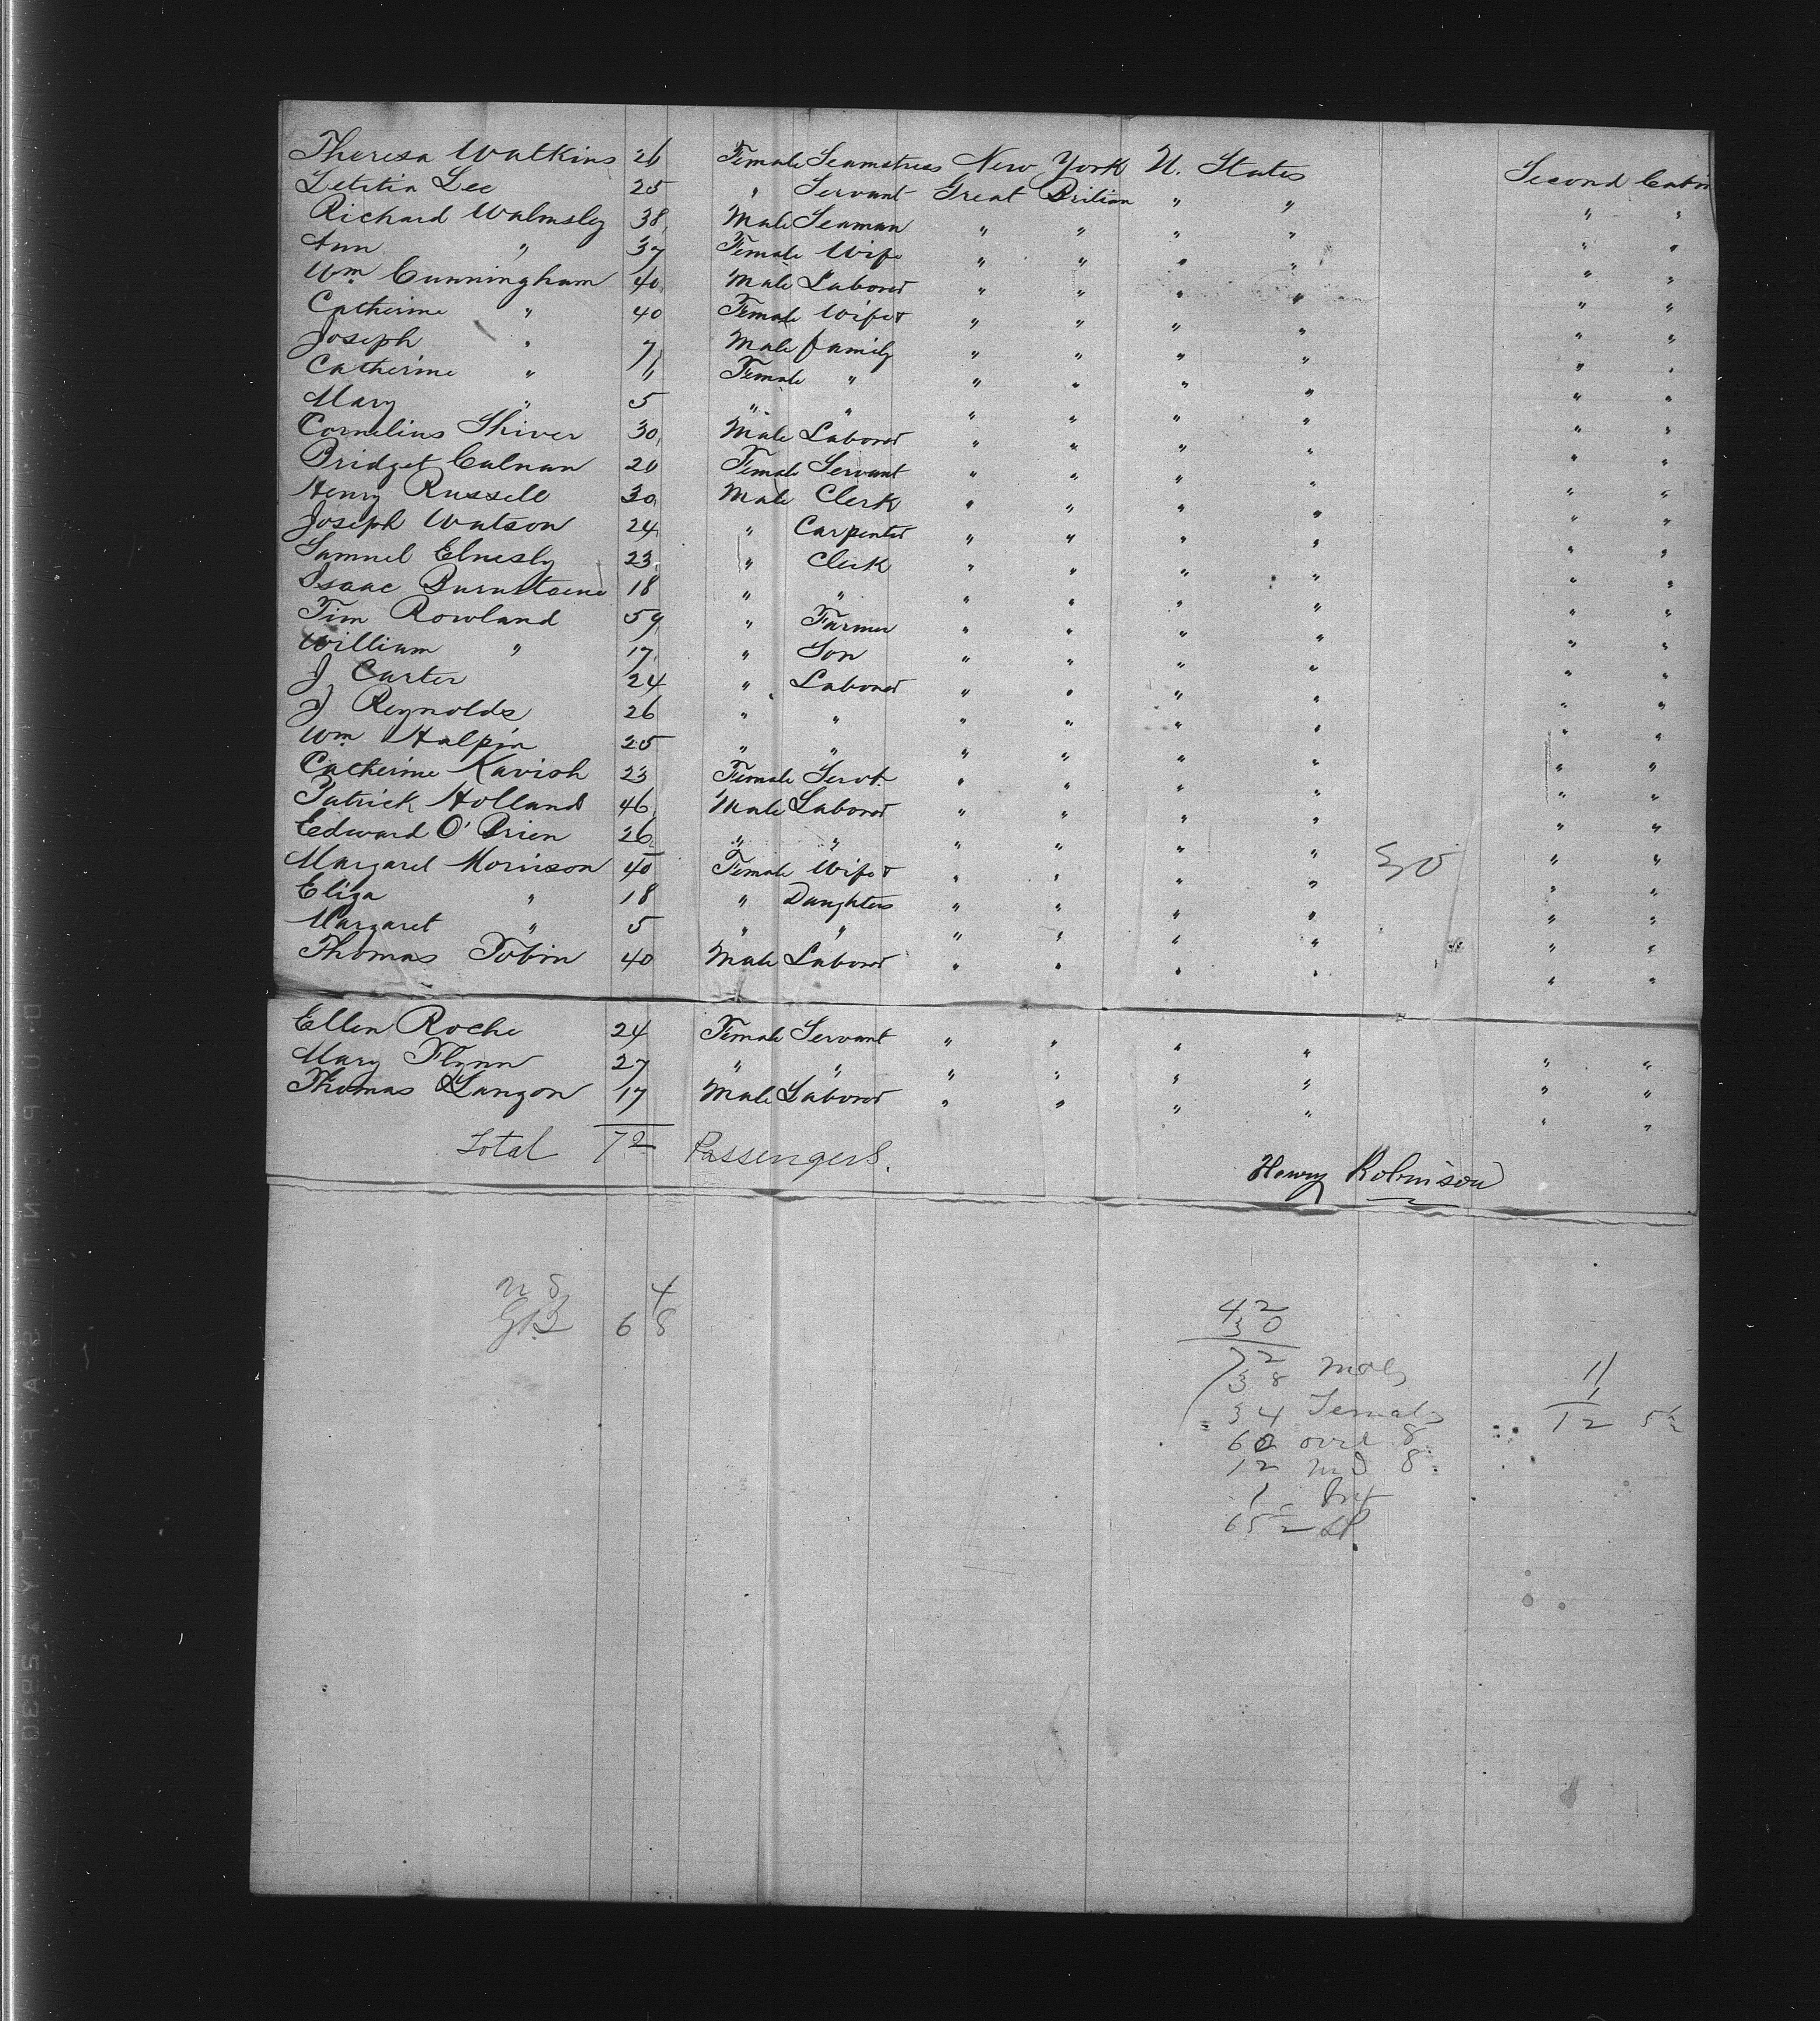 Theresa Watkins 26 Female Seamstress New York U. States Second Cabin
Letitia Lee 25 " Servant Great Britian " " " "
Richard Walmsley 38 Male Seaman " " " " " "
Ann " 37 Female Wife " " " " " "
Wm. Cunningham 40 Male Laborer " " " " " "
Catherine " 40 Female Wife & " " " " " "
Joseph " 7 Male family " " " " " "
Catherine " 11 Female " " " " " " "
Mary " 5 " " " " " " " "
Cornelius Shiver 30 Male Laborer " " " " " "
Bridget Calnan 20 Female Servant " " " " " "
Henry Russell 30 Male Clerk " " " " " "
Joseph Watson 24 " Carpenter " " " " " "
Samuel Elmesly 23 " Clerk " " " " " "
Isaac 18 " " " " " " " "
Tim Rowland 59 " Farmer " " " " " "
William " 17 " Son " " " " " "
J Carter 24 " Laborer " " " " " "
J Reynolds 26 " " " " " " " "
Wm. Halpin 25 " " " " " " " "
Catherine Kavish 23 Female Servt. " " " " " "
Patrick Holland 46 Male Laborer " " " " " "
Edward O'Brien 26 " " " " " " " "
Margaret Morrison 40 Female Wife & " " " " 30 " "
Eliza " 18 " Daughters " " " " " "
Margaret " 5 " " " " " " " "
Thomas Tobin 40 Male Laborer " " " " " "
Ellen Roche 24 Female Servant " " " " " "
Mary Flynn 27 " " " " " " " "
Thomas Langon 17 Male Laborer " " " " " "
Total 72 Passengers.
Henry Robinson
U S 4
GB 68
42
30
72
38 Males
34 Females
60 over 8
12 und 8
1 Inf
65 2
11
1
12